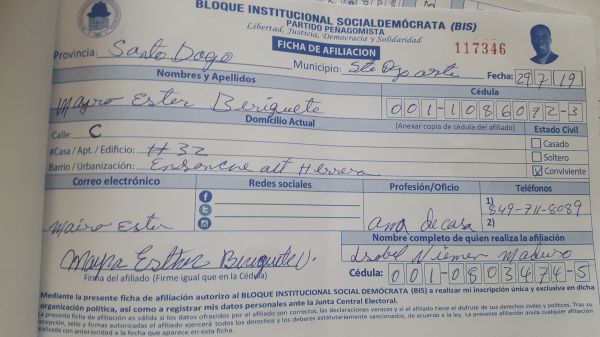 BLOQUE INSTITUCIONAL SOCIALDEMÓCRATA (BIS)
PARTIDO PEÑAGOMISTA
Libertad, Justicia, Democracia y Solidaridad
FICHA DE AFILIACION
117346
Provincia: Santo Dgo Municipio: Sto Dgo Oeste Fecha: 29 7 19
Nombres y Apellidos Cédula
Mayra Ester Beriguete 001-1086072-3
Domicilio Actual (Anexar copia de cédula del afiliado) Estado Civil
Calle: C Casado
#Casa / Apt. / Edificio: #32 Soltero
Barrio / Urbanización: Ensanche alt Herrera Conviviente
Correo electrónico Redes sociales Profesión/Oficio Teléfonos
1) 849-711-8089
Mairo Ester Ama de casa 2)
Nombre completo de quien realiza la afiliación
Mayra Esther Beriguete Isabel Maduro
Firma del afiliado (Firme igual que en la Cédula) Cédula: 001-0803474-5
Mediante la presente ficha de afiliación autorizo al BLOQUE INSTITUCIONAL SOCIAL DEMÓCRATA (BIS) a realizar mi inscripción única y exclusiva en dicha
organización política, así como a registrar mis datos personales ante la Junta Central Electoral.
La presente ficha de afiliación es válida si los datos ofrecidos por el afiliado son correctos, las declaraciones veraces y si el afiliado tiene el disfrute de sus derechos civiles y políticos. Tras su
recepción, sello y firmas autorizadas el afiliado ejercerá todos los derechos y los deberes estatutariamente sancionados, de acuerdo a la ley. La presente afiliación anula cualquier afiliación
realizada con anterioridad a la fecha que aparece en esta ficha.